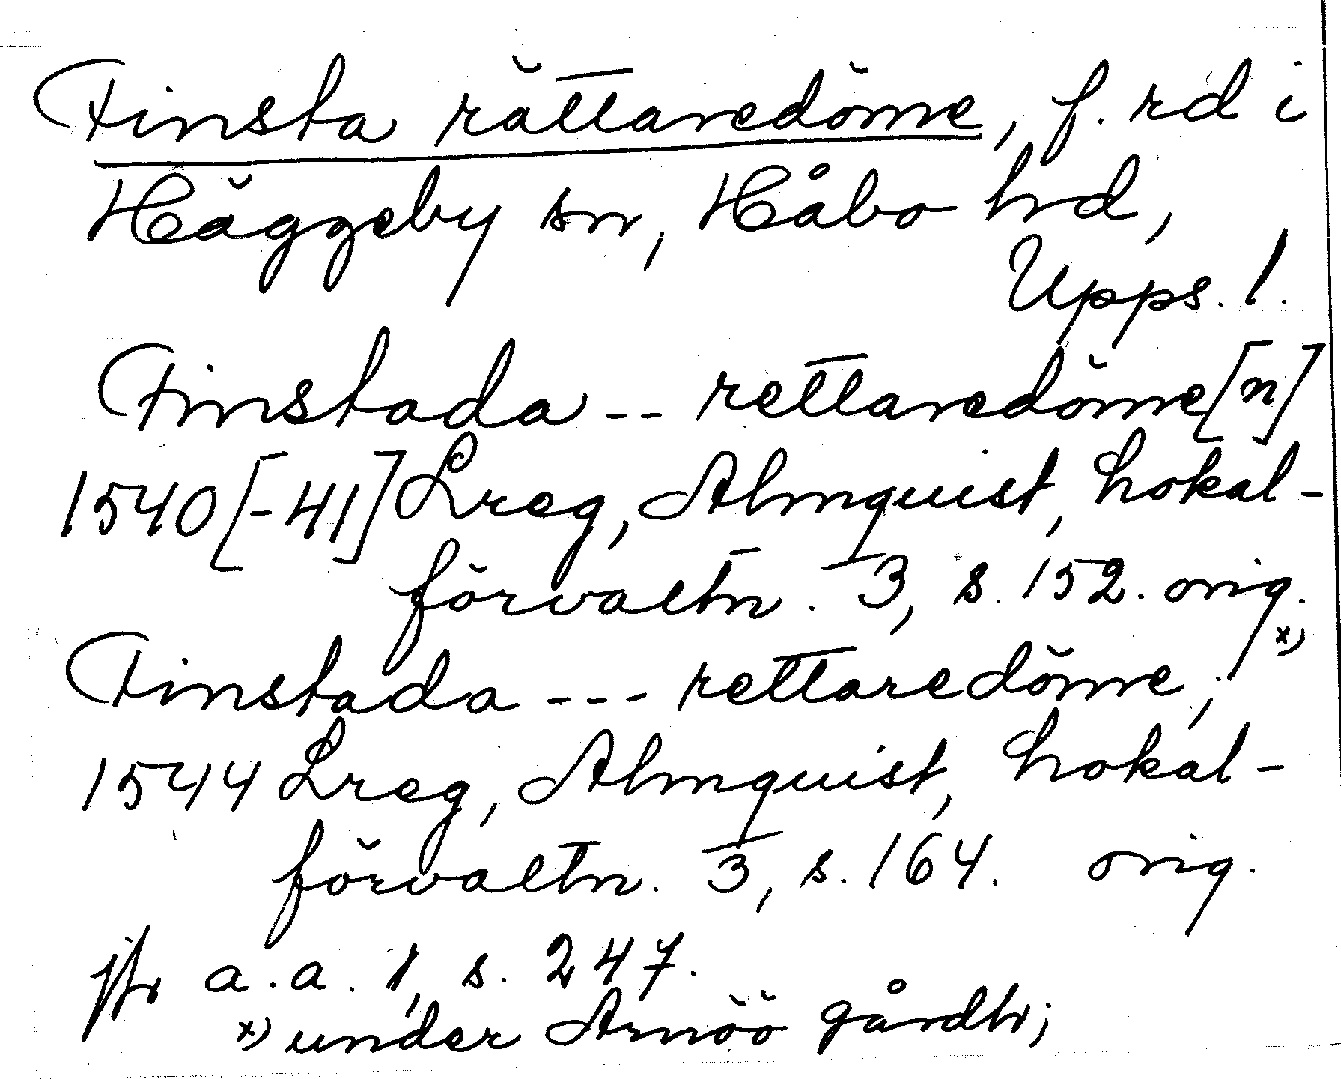 Finsta rättaredöme, f. rd i
Häggeby sn, Håbo hd,
Upps. l.
Finstada -- rettaredöme[n]
1540[-41] Lreg, Almquist, Lokal-
förvaltn. 3, s. 152. orig.
Finstada --- rettaredöme, x)
1544 Lreg, Almquist, Lokal-
förvaltn. 3, s. 164. orig.
jfr a.a. 1, s. 247.
x) under Arnöö gårdh;